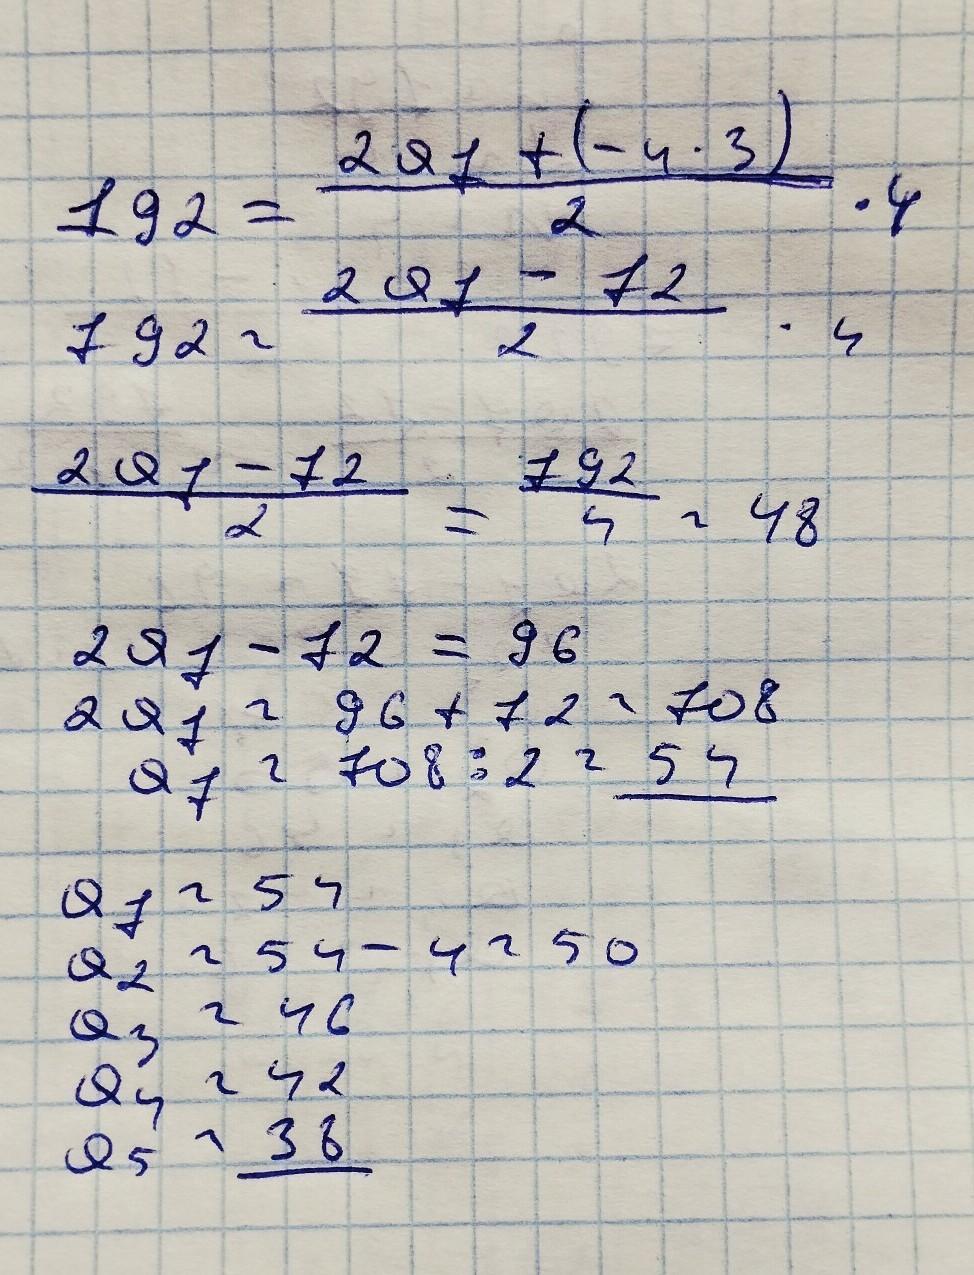 192 = (2a1 + (-4·3))/2 · 4
192 = (2a1 - 12)/2 · 4
(2a1 - 12)/2 = 192/4 = 48
2a1 - 12 = 96
2a1 = 96 + 12 = 108
a1 = 108 : 2 = 54
a1 = 54
a2 = 54 - 4 = 50
a3 = 46
a4 = 42
a5 = 38